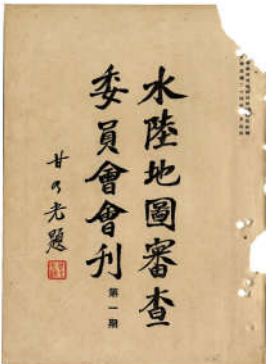 水陸地圖審查
委員會會刊
第一期
甘乃光題